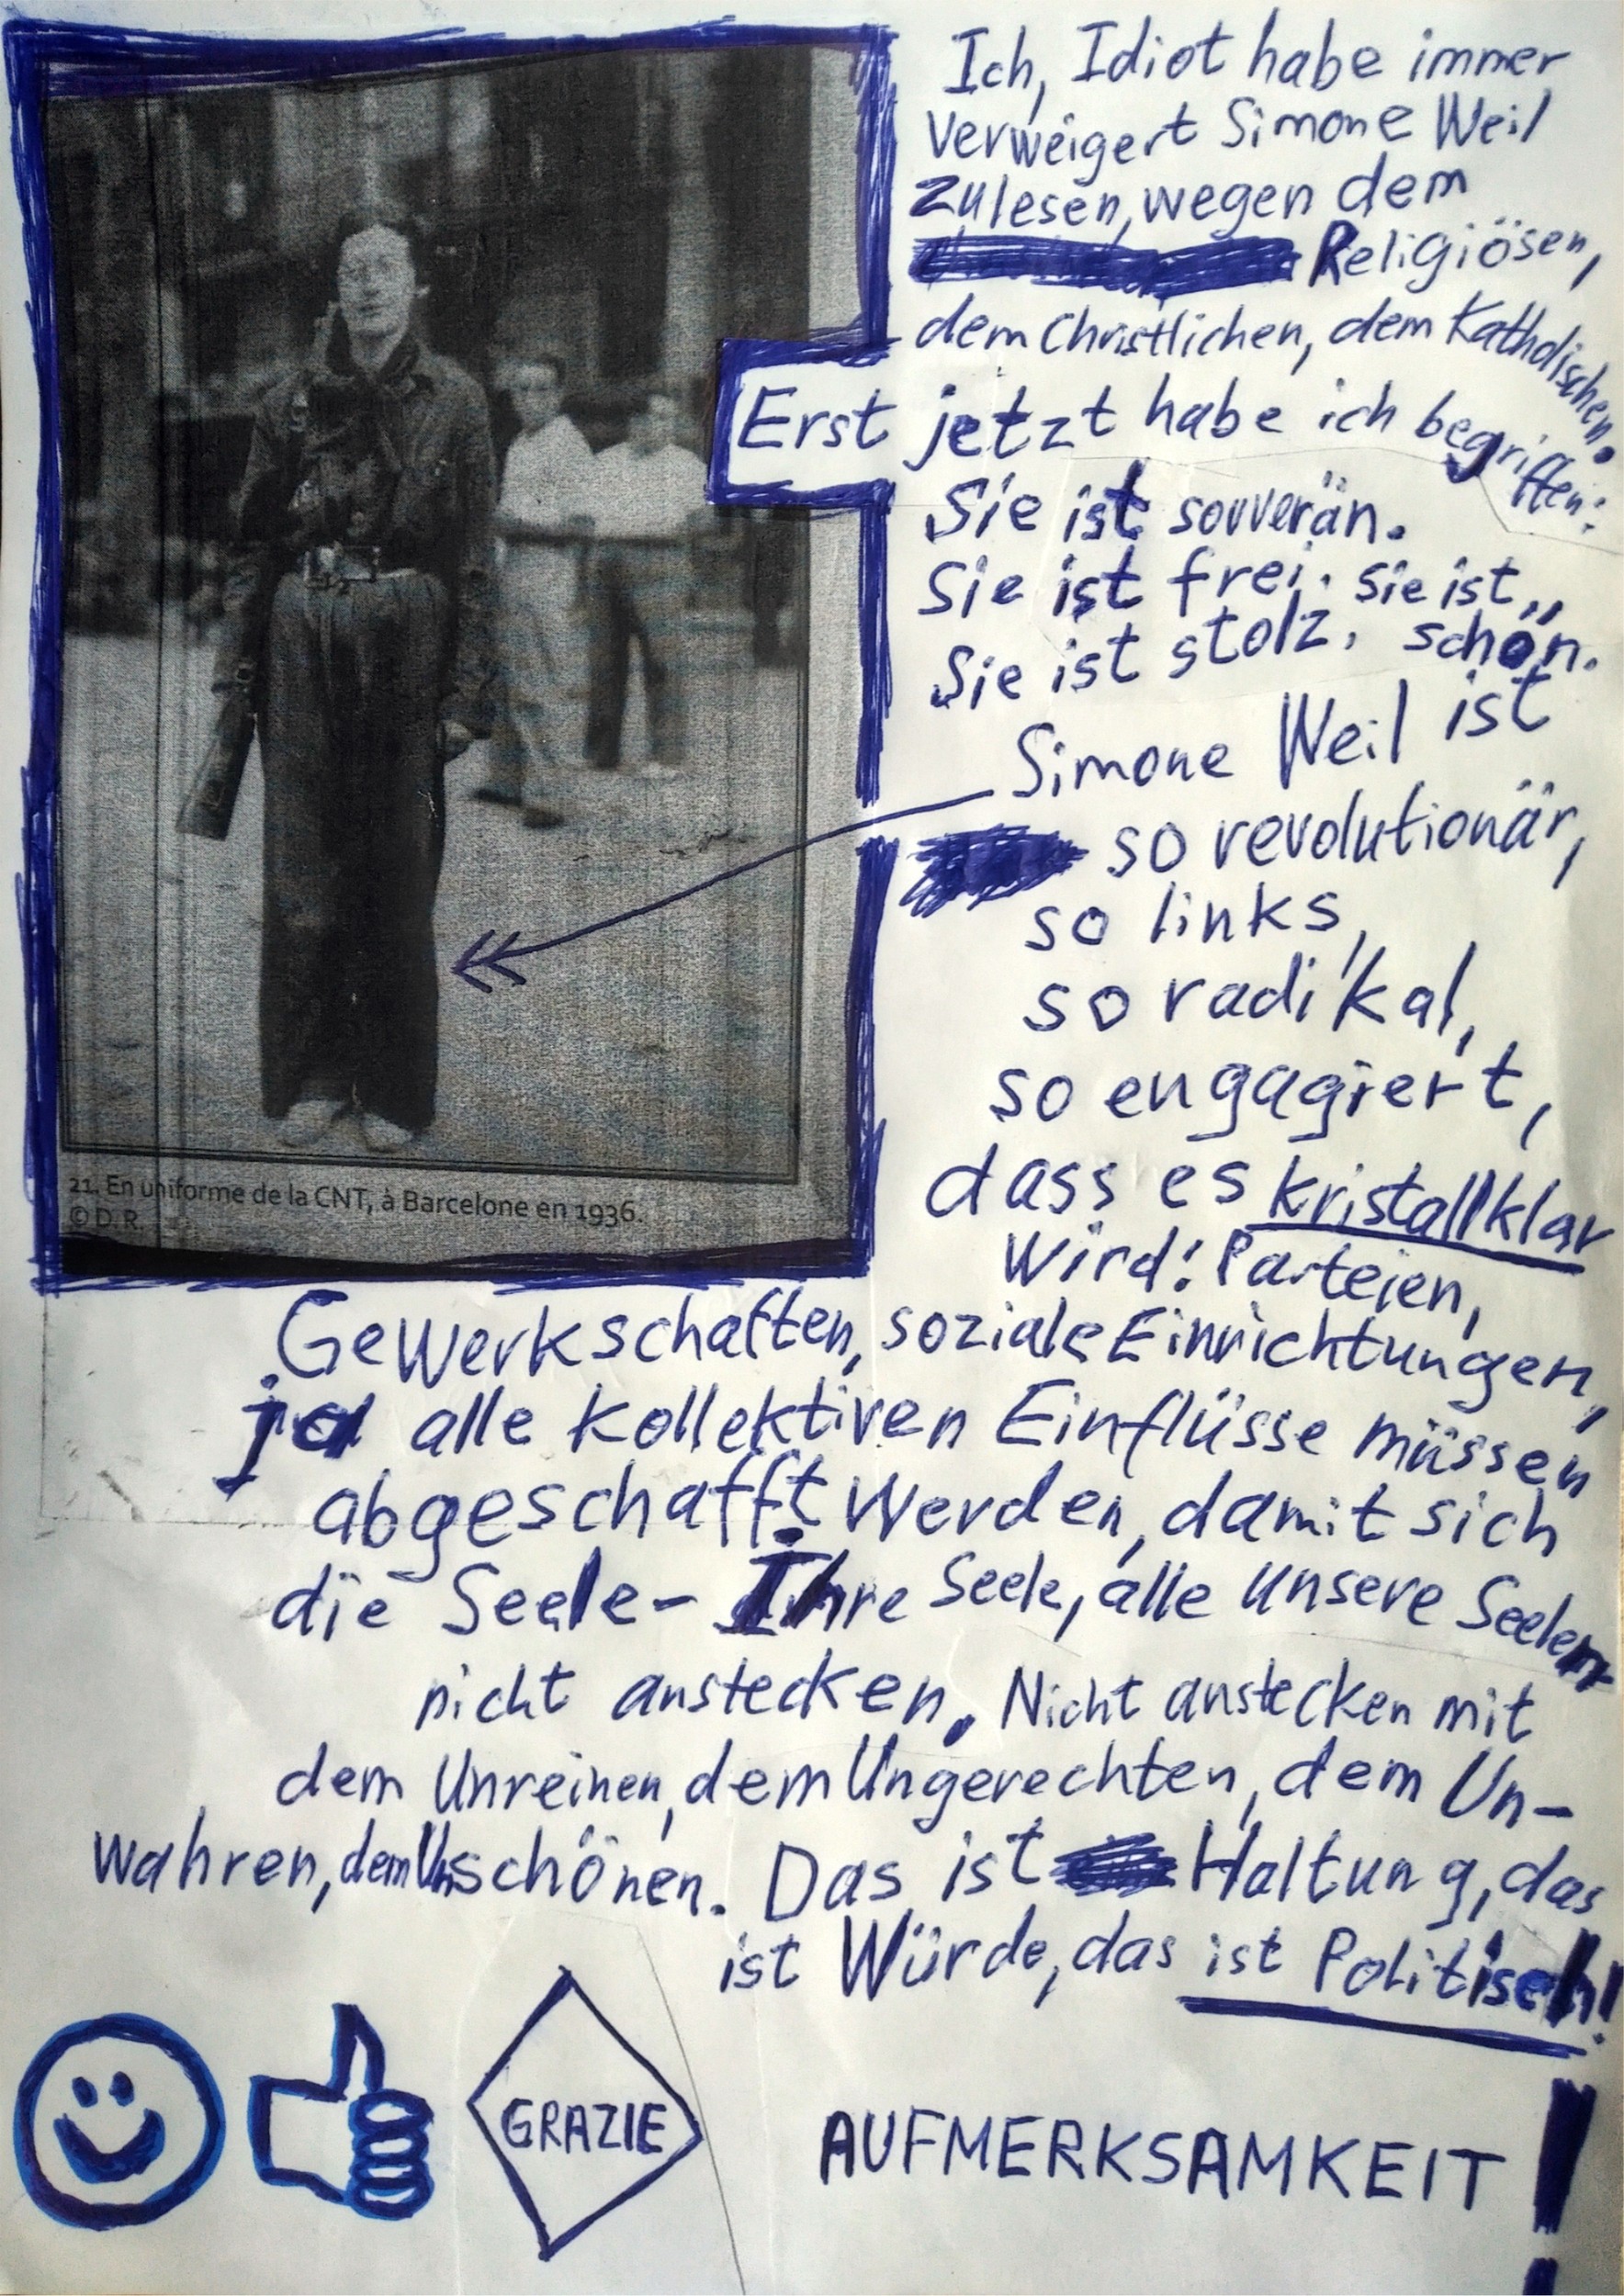 Ich, Idiot habe immer
verweigert Simone Weil
zu lesen, wegen dem
Religiösen,
dem Christlichen, dem Katholischen.
Erst jetzt habe ich begriffen:
Sie ist souverän.
Sie ist frei. Sie ist
Sie ist stolz. schön.
Simone Weil ist
so revolutionär,
so links,
so radikal,
so engagiert,
dass es kristallklar
wird: Parteien,
Gewerkschaften, soziale Einrichtungen,
ja alle kollektiven Einflüsse müssen
abgeschafft werden, damit sich
die Seele - Ihre Seele, alle unsere Seelen
nicht anstecken. Nicht anstecken mit
dem Unreinen, dem Ungerechten, dem Un-
wahren, dem Unschönen. Das ist Haltung, das
ist Würde, das ist Politisch!
21. En uniforme de la CNT, à Barcelone en 1936.
© D.R.
GRAZIE
AUFMERKSAMKEIT!